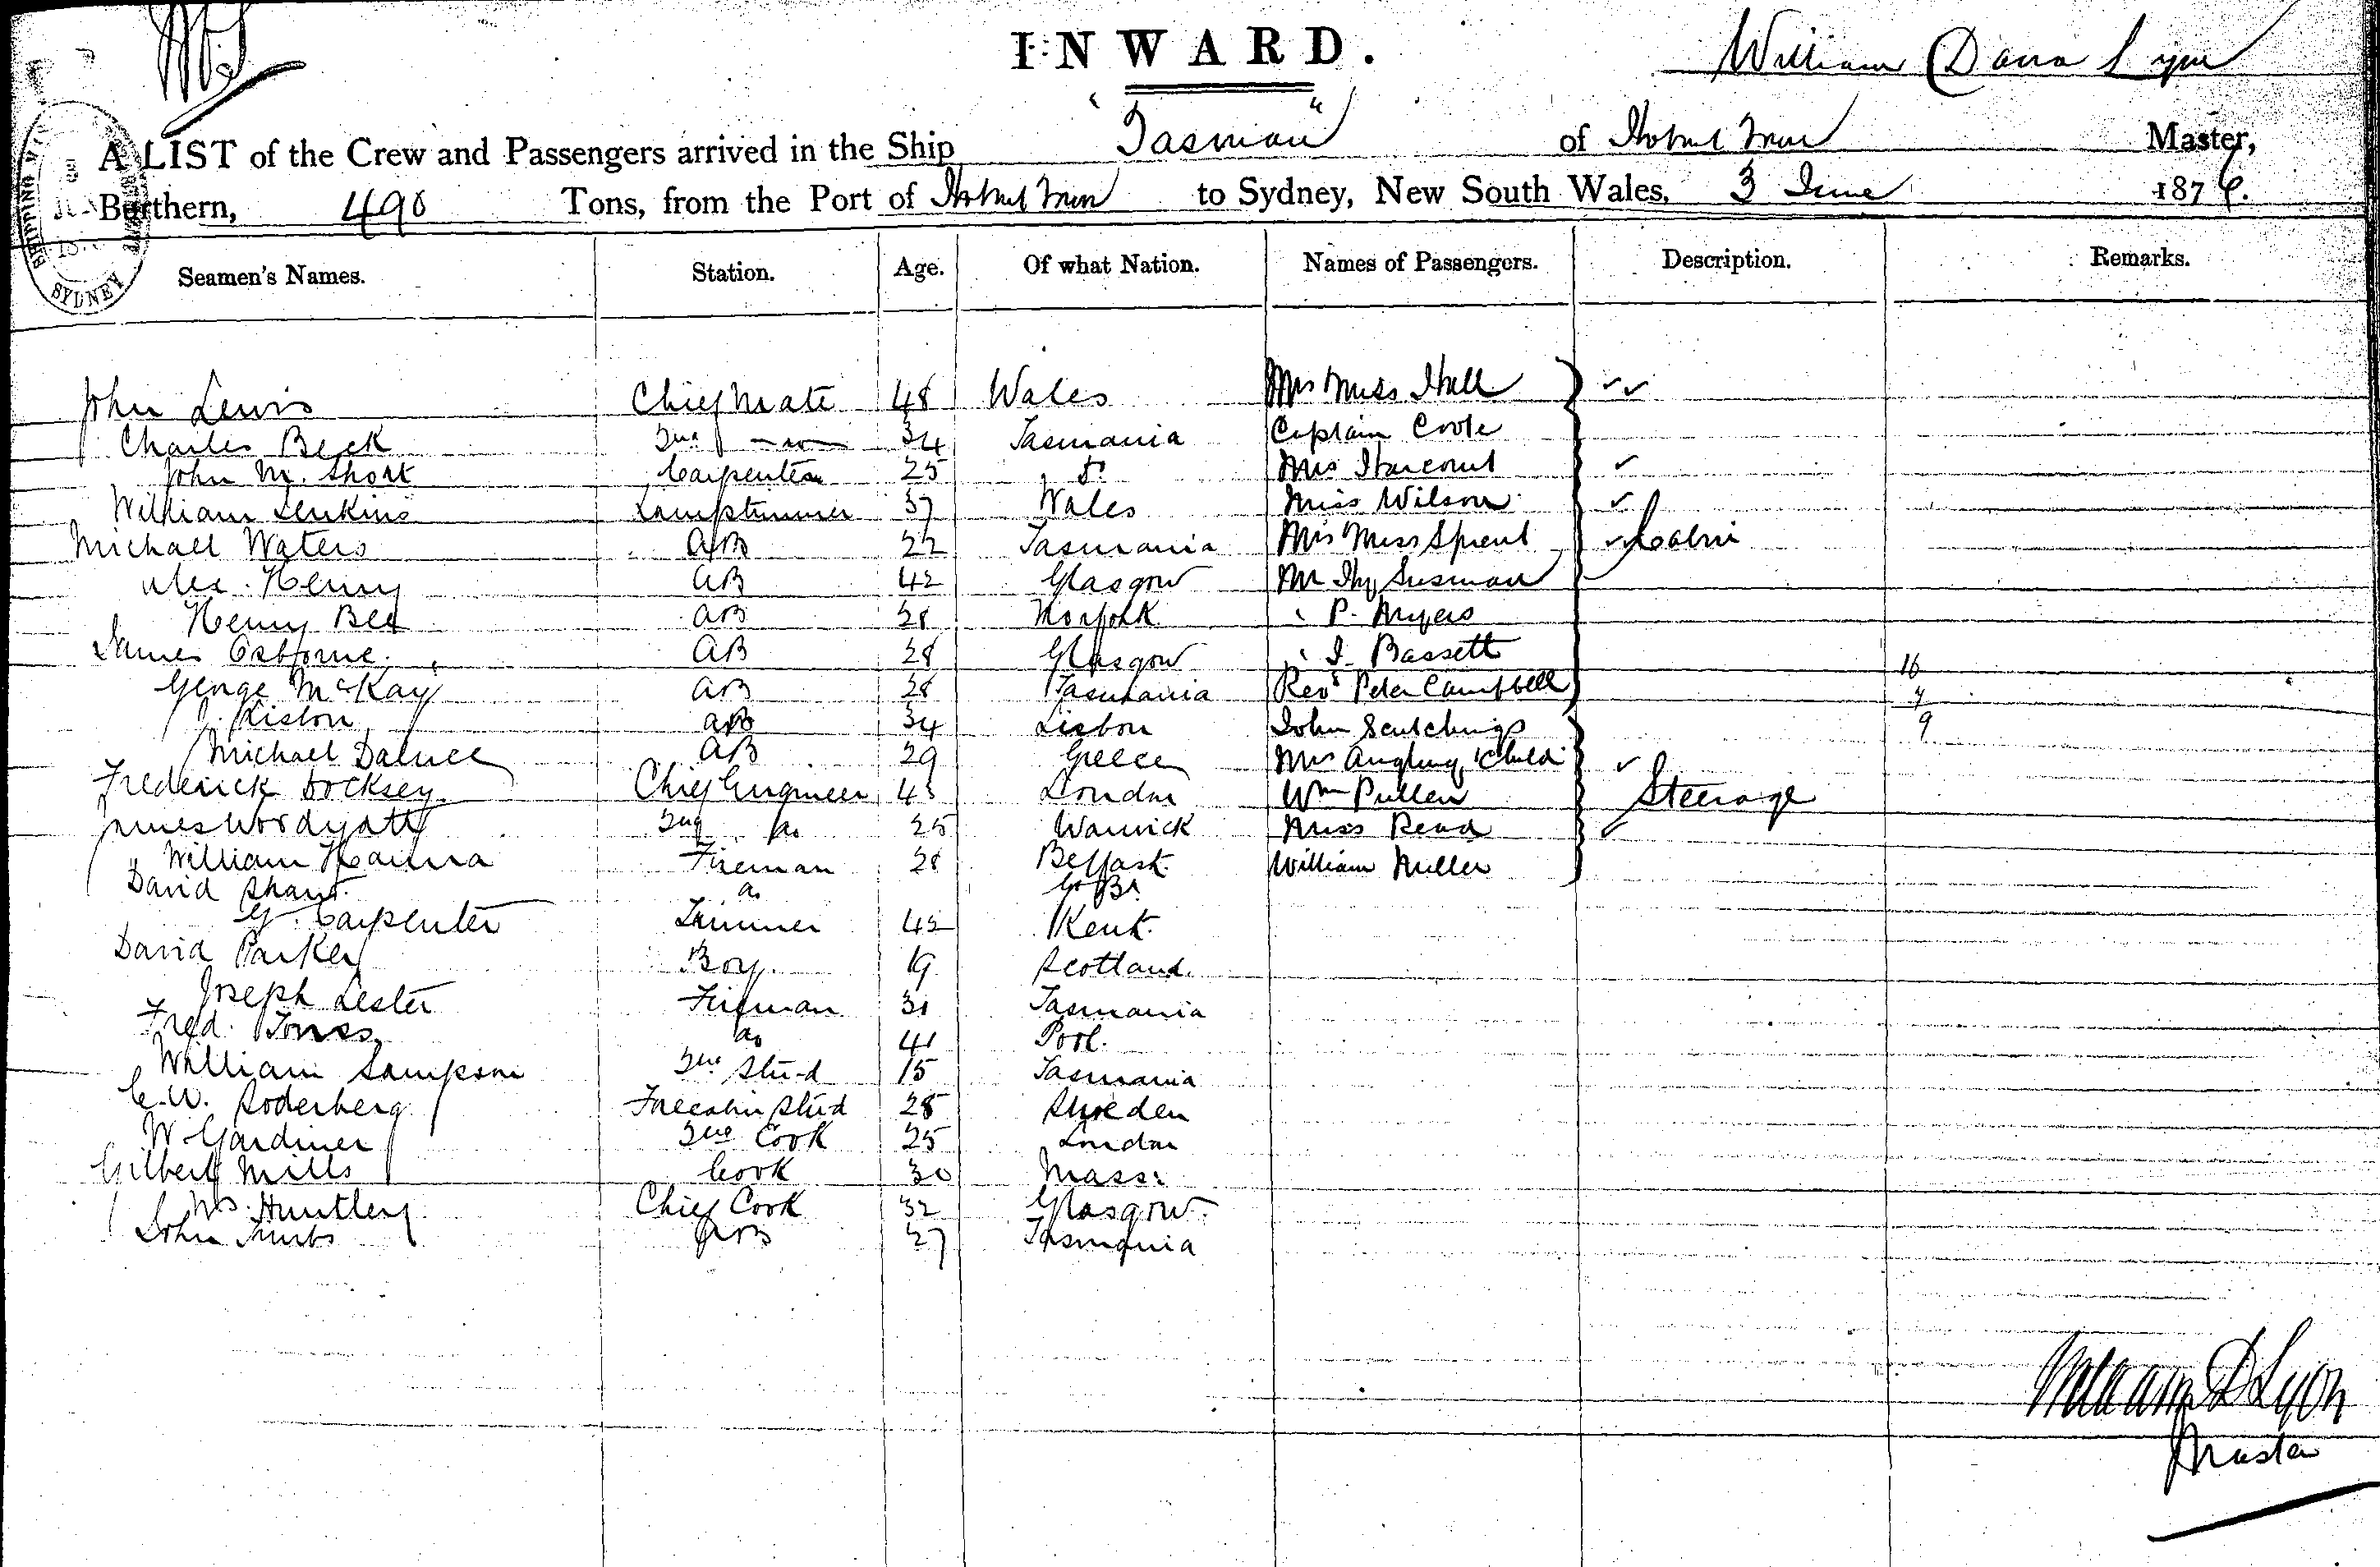 INWARD.
William Dana Lyon
A LIST of the Crew and Passengers arrived in the Ship "Tasman" of Hobart Town Master,
Burthern, 490 Tons, from the Port of Hobart Town to Sydney, New South Wales, 3 June 1876.
SYDNEY
Seamen's Names. Station. Age. Of what Nation. Names of Passengers. Description. Remarks.
John Lewis Chief Mate 48 Wales Mrs Miss Hall
Charles Beck 2nd 34 Tasmania Captain Coote
John M. Short Carpenter 25 Do Mrs Harcourt
William Jenkins Lamptrimmer 37 Wales Miss Wilson
Michael Waters AB 22 Tasmania Mrs Miss Sprent Cabin
Alex. Henny AB 42 Glasgow Mr Susman
Henry Bee AB 28 Norfolk " P. Myers
James Osborne AB 28 Glasgow " I. Bassett 16
George McKay AB 28 Tasmania Revd Peter Campbell 7
J. Liston AB 34 Lisbon John Scutchings 9
Michael AB 29 Greece Mrs Child
Frederick Docksey Chief Engineer 43 London Wm Pullen Steerage
James Woodyatt 2nd Do 25 Warwick Miss Read
William Hanna Fireman 28 Belfast William Miller
David Shand Do
G. Carpenter Trimmer 42 Kent
David Parker Boy 19 Scotland
Joseph Lester Fireman 31 Tasmania
Fred. Jones Do 41
William Sampson 2nd Stu-d 15 Tasmania
C.W. Soderberg Forecabin Stu-d 28 Sweden
W. Gardiner 2nd Cook 25 London
Gilbert Mills Cook 30 Mass:
Huntley Chief Cook 32 Glasgow
John AB 27 Tasmania
William D Lyon
Master